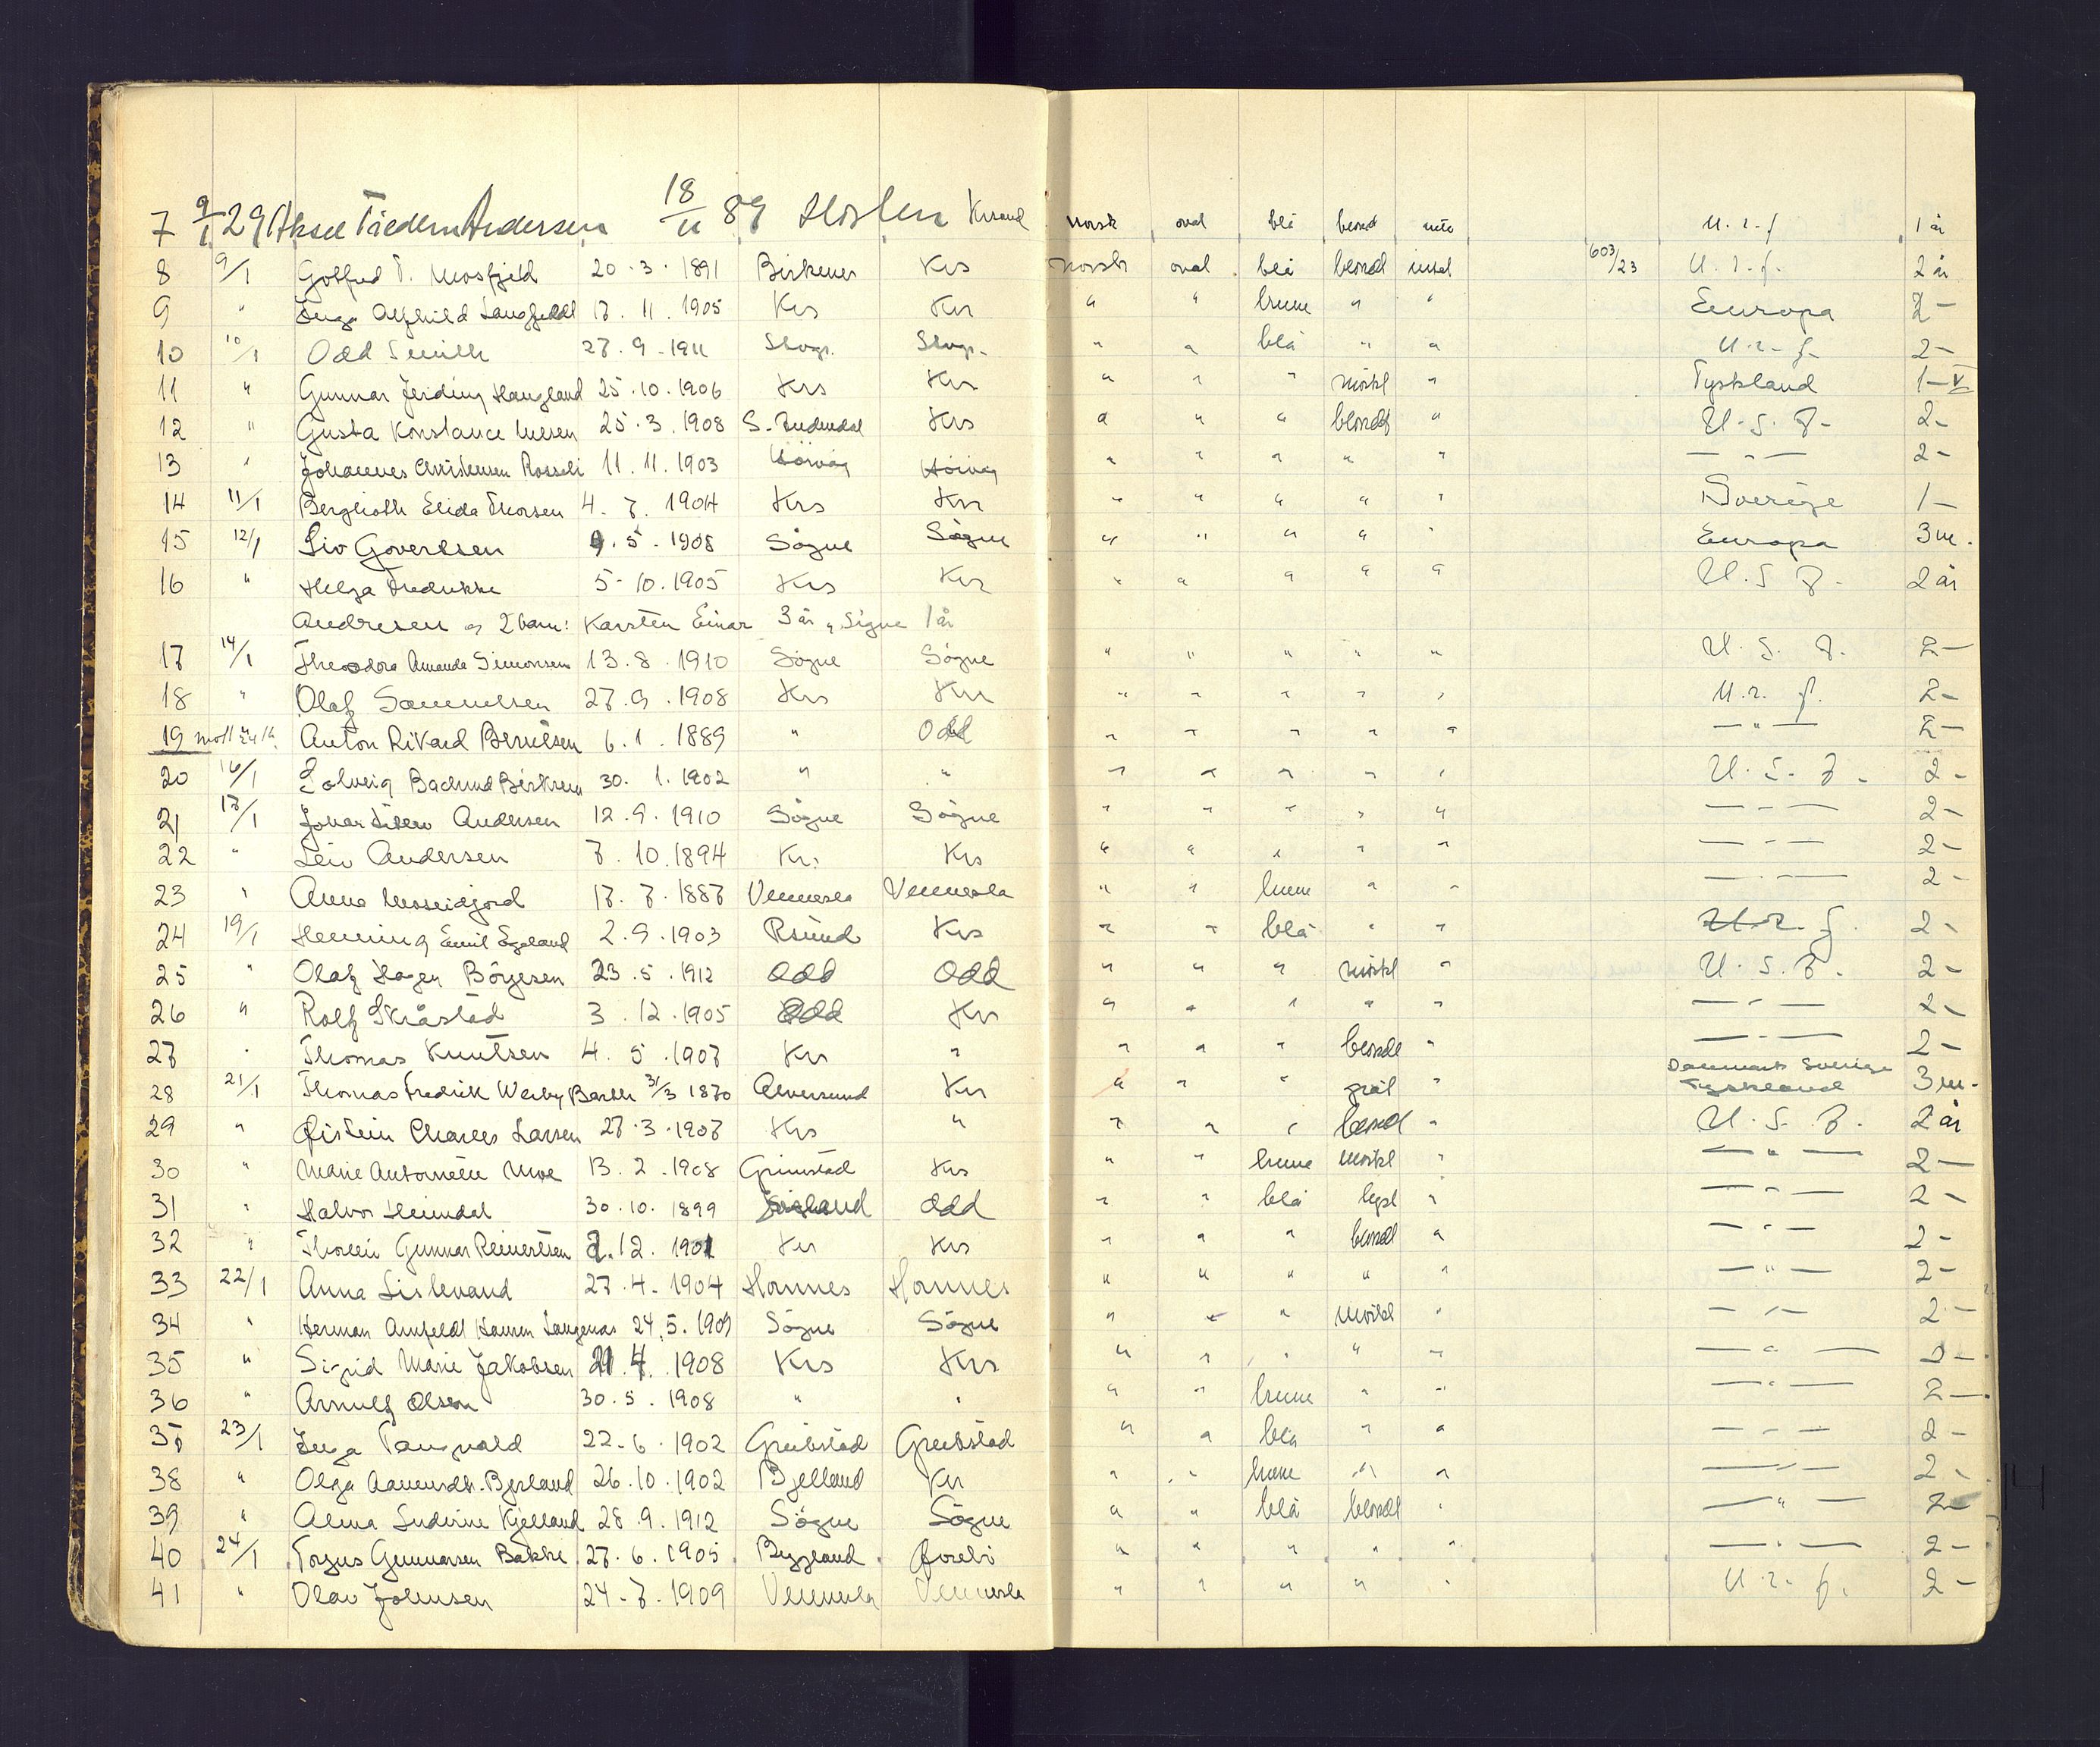 7 9/1 29 Aksel Andersen 18/11 89 Krsand norsk oval blå blond U.r.f 1 år
8 9/1 T. Mosfjeld 20.3.1891 Birkenes Krs norsk oval blå blondt 603/23 U.r.f. 2 år
9 " Inga Alfhild Langfeldt 17.11.1905 Krs Krs " " brune " " Europa 2 –
10 10/1 Odd Smith 27.9.1911 " " blå " " U.r.f. 2 –
11 " Gunnar Haugland 25.10.1906 Krs Krs " " " mörkt " Tyskland 1 –
12 " Gusta Konstance 25.3.1908 S. Audnedal Krs " " " blondt " U.S.A. 2 –
13 " Johannes Christensen 11.11.1903 " " " " " — " — 2 –
14 11/1 Berglioth Elida Thorsen 4.7.1904 Krs Krs " " " " " Sverige 1 –
15 12/1 Liv Govertsen 9.5.1908 Søgne Søgne " " " " " Europa 3 m.
16 " Helga Fredrikke 5.10.1905 Krs Krs " " " " " U.S.A. 2 år
Andresen og 2 barn: Karsten Einar 3 år, Signe 1 år
17 14/1 Theodora Amanda Simonsen 13.8.1910 Søgne Søgne " " " " " U.S.A. 2 –
18 " Olaf Samuelsen 27.9.1908 Krs Krs " " " " " U.r.f. 2 –
19 Anton Rikard Berntsen 6.1.1889 " Odd " " " " " — " — 2 –
20 16/1 Solveig 30.1.1902 " " " " " " " U.S.A. 2 –
21 17/1 Andersen 12.9.1910 Søgne Søgne " " " " " — " — 2 –
22 " Leiv Andersen 7.10.1894 Kr. Krs " " " " " — " — 2 –
23 " Anna 17.7.1887 Vennesla Vennesla " " brune " " — " — 2 –
24 19/1 Henning Emil Egeland 2.9.1903 Krs " " blå " " 2 –
25 " Olaf Hagen Börgesen 23.5.1912 Odd Odd " " " mörkt " U.S.A. 2 –
26 " Rolf Skråstad 3.12.1905 Odd Krs " " " " " — " — 2 –
27 " Thomas Knutsen 4.5.1907 Krs " " " " blondt " — " — 2 –
28 21/1 Thomas Fredrik Barth 31/3 1870 Alversund Krs " " " gråt " Danmark Sverige Tyskland 3 m.
29 " Øistein Charles Larsen 27.3.1907 Krs " " " " blond " U.S.A. 2 år
30 " Marie Antoinette Moe 13.2.1908 Grimstad Krs " " brune mörkt " — " — 2 –
31 " Halvor Heimdal 30.10.1899 Odd " " blå lyst " — " — 2 –
32 " Gunnar Reinertsen 2.12.1901 Kr Krs " " " blondt " — " — 2 –
33 22/1 Anna Lislevand 27.4.1904 Hornnes Hornnes " " " " " — " — 2 –
34 " Herman Arnfeldt Hansen Langenes 24.5.1909 Søgne Søgne " " " mörkt " — " — 2 –
35 " Sigrid Marie Jakobsen 21.4.1908 Krs Krs " " " " " — " — 2 –
36 " Arnulf Olsen 30.5.1908 " " " " brune " " — " — 2 –
37 23/1 Inga Tangvald 22.6.1902 Greibstad Greibstad " " blå " " — " — 2 –
38 " Olga 26.10.1902 Bjelland Kr " " brune " " — " — 2 –
39 " Alma Kjelland 28.9.1912 Søgne Søgne " " blå blondt " — " — 2 –
40 24/1 Torjus Gunnarsen Bakke 27.6.1905 Bygland " " " " " — " — 2 –
41 " Olav Johnsen 24.7.1909 Vennesla Vennesla " " " " " U.r.f. 2 –